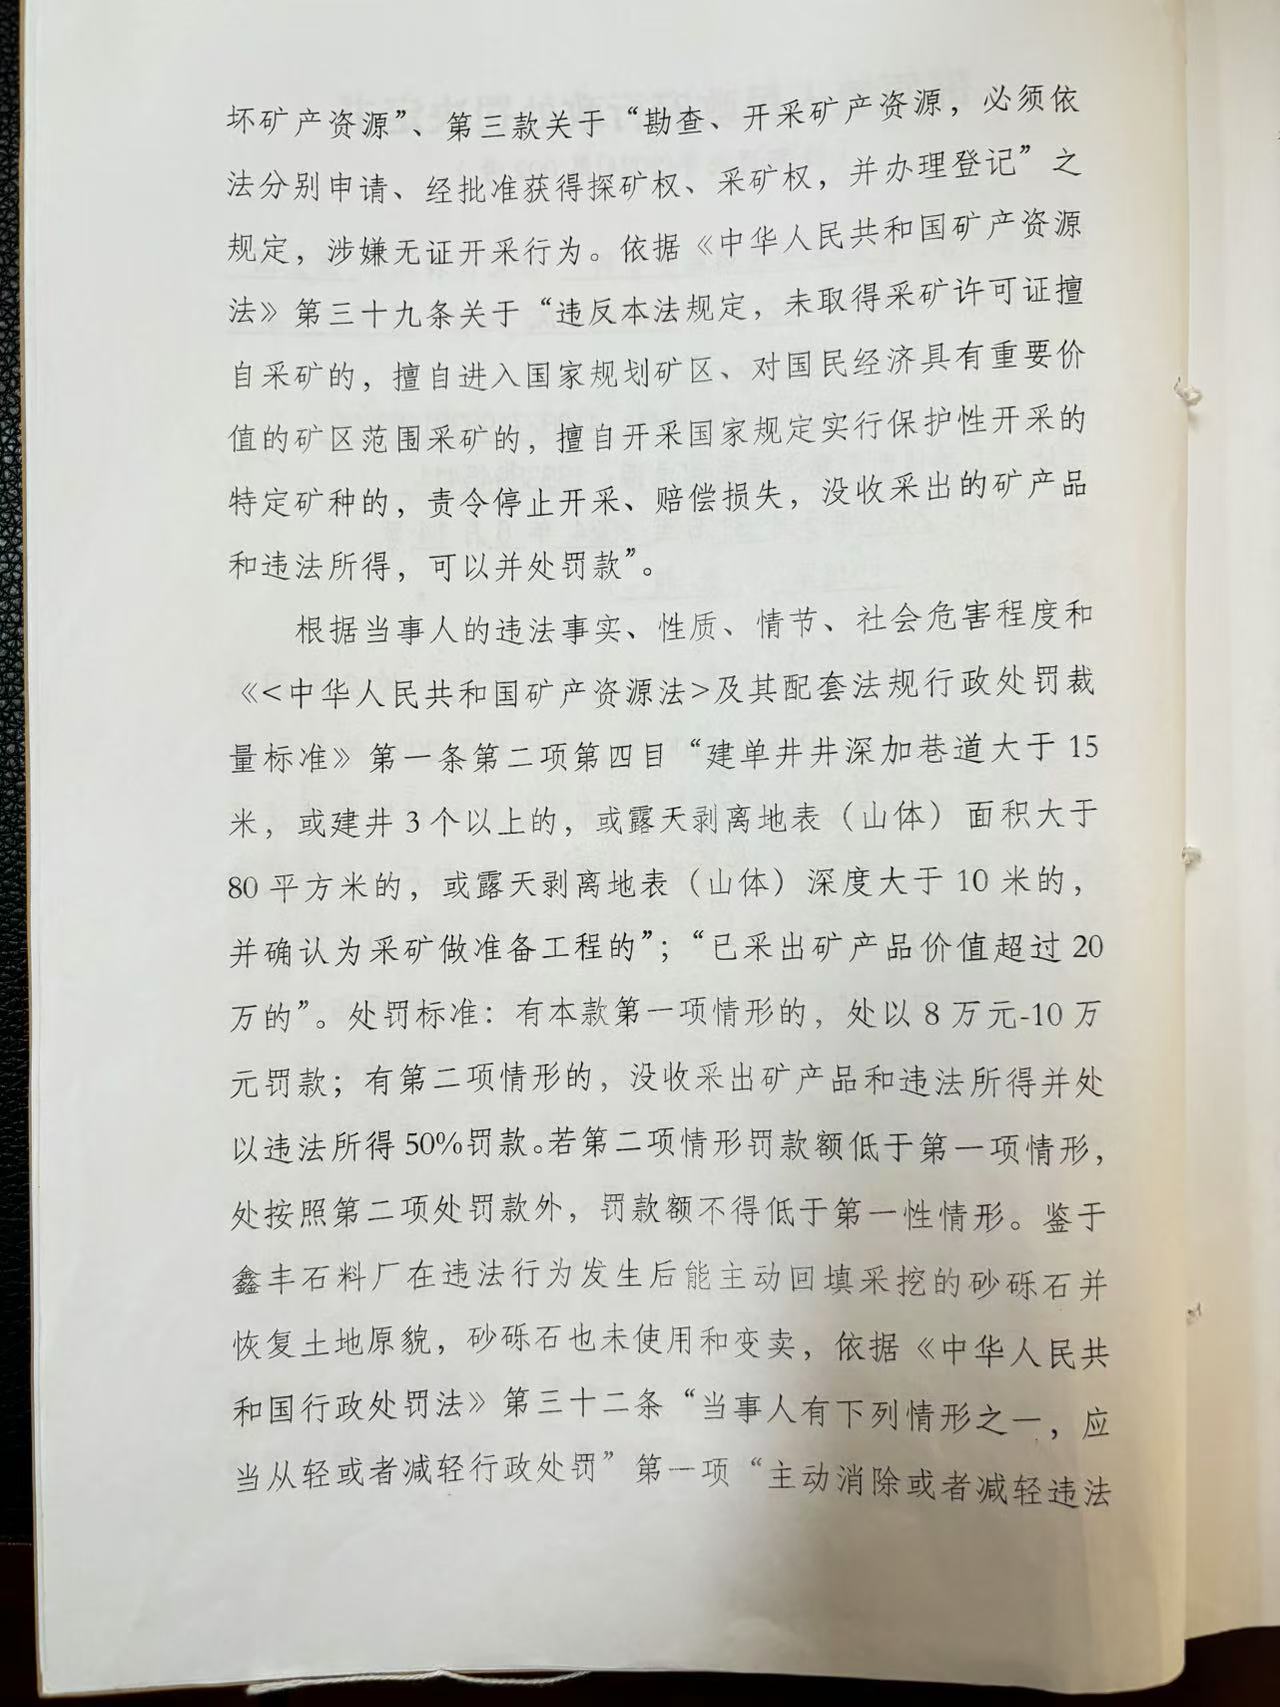 坏矿产资源”、第三款关于“勘查、开采矿产资源，必须依
法分别申请、经批准获得探矿权、采矿权，并办理登记”之
规定，涉嫌无证开采行为。依据《中华人民共和国矿产资源
法》第三十九条关于“违反本法规定，未取得采矿许可证擅
自采矿的，擅自进入国家规划矿区、对国民经济具有重要价
值的矿区范围采矿的，擅自开采国家规定实行保护性开采的
特定矿种的，责令停止开采、赔偿损失，没收采出的矿产品
和违法所得，可以并处罚款”。
根据当事人的违法事实、性质、情节、社会危害程度和
《<中华人民共和国矿产资源法>及其配套法规行政处罚裁
量标准》第一条第二项第四目“建单井井深加巷道大于 15
米，或建井 3 个以上的，或露天剥离地表（山体）面积大于
80 平方米的，或露天剥离地表（山体）深度大于 10 米的，
并确认为采矿做准备工程的”；“已采出矿产品价值超过 20
万的”。处罚标准：有本款第一项情形的，处以 8 万元-10 万
元罚款；有第二项情形的，没收采出矿产品和违法所得并处
以违法所得 50%罚款。若第二项情形罚款额低于第一项情形，
处按照第二项处罚款外，罚款额不得低于第一性情形。鉴于
鑫丰石料厂在违法行为发生后能主动回填采挖的砂砾石并
恢复土地原貌，砂砾石也未使用和变卖，依据《中华人民共
和国行政处罚法》第三十二条“当事人有下列情形之一，应
当从轻或者减轻行政处罚”第一项“主动消除或者减轻违法